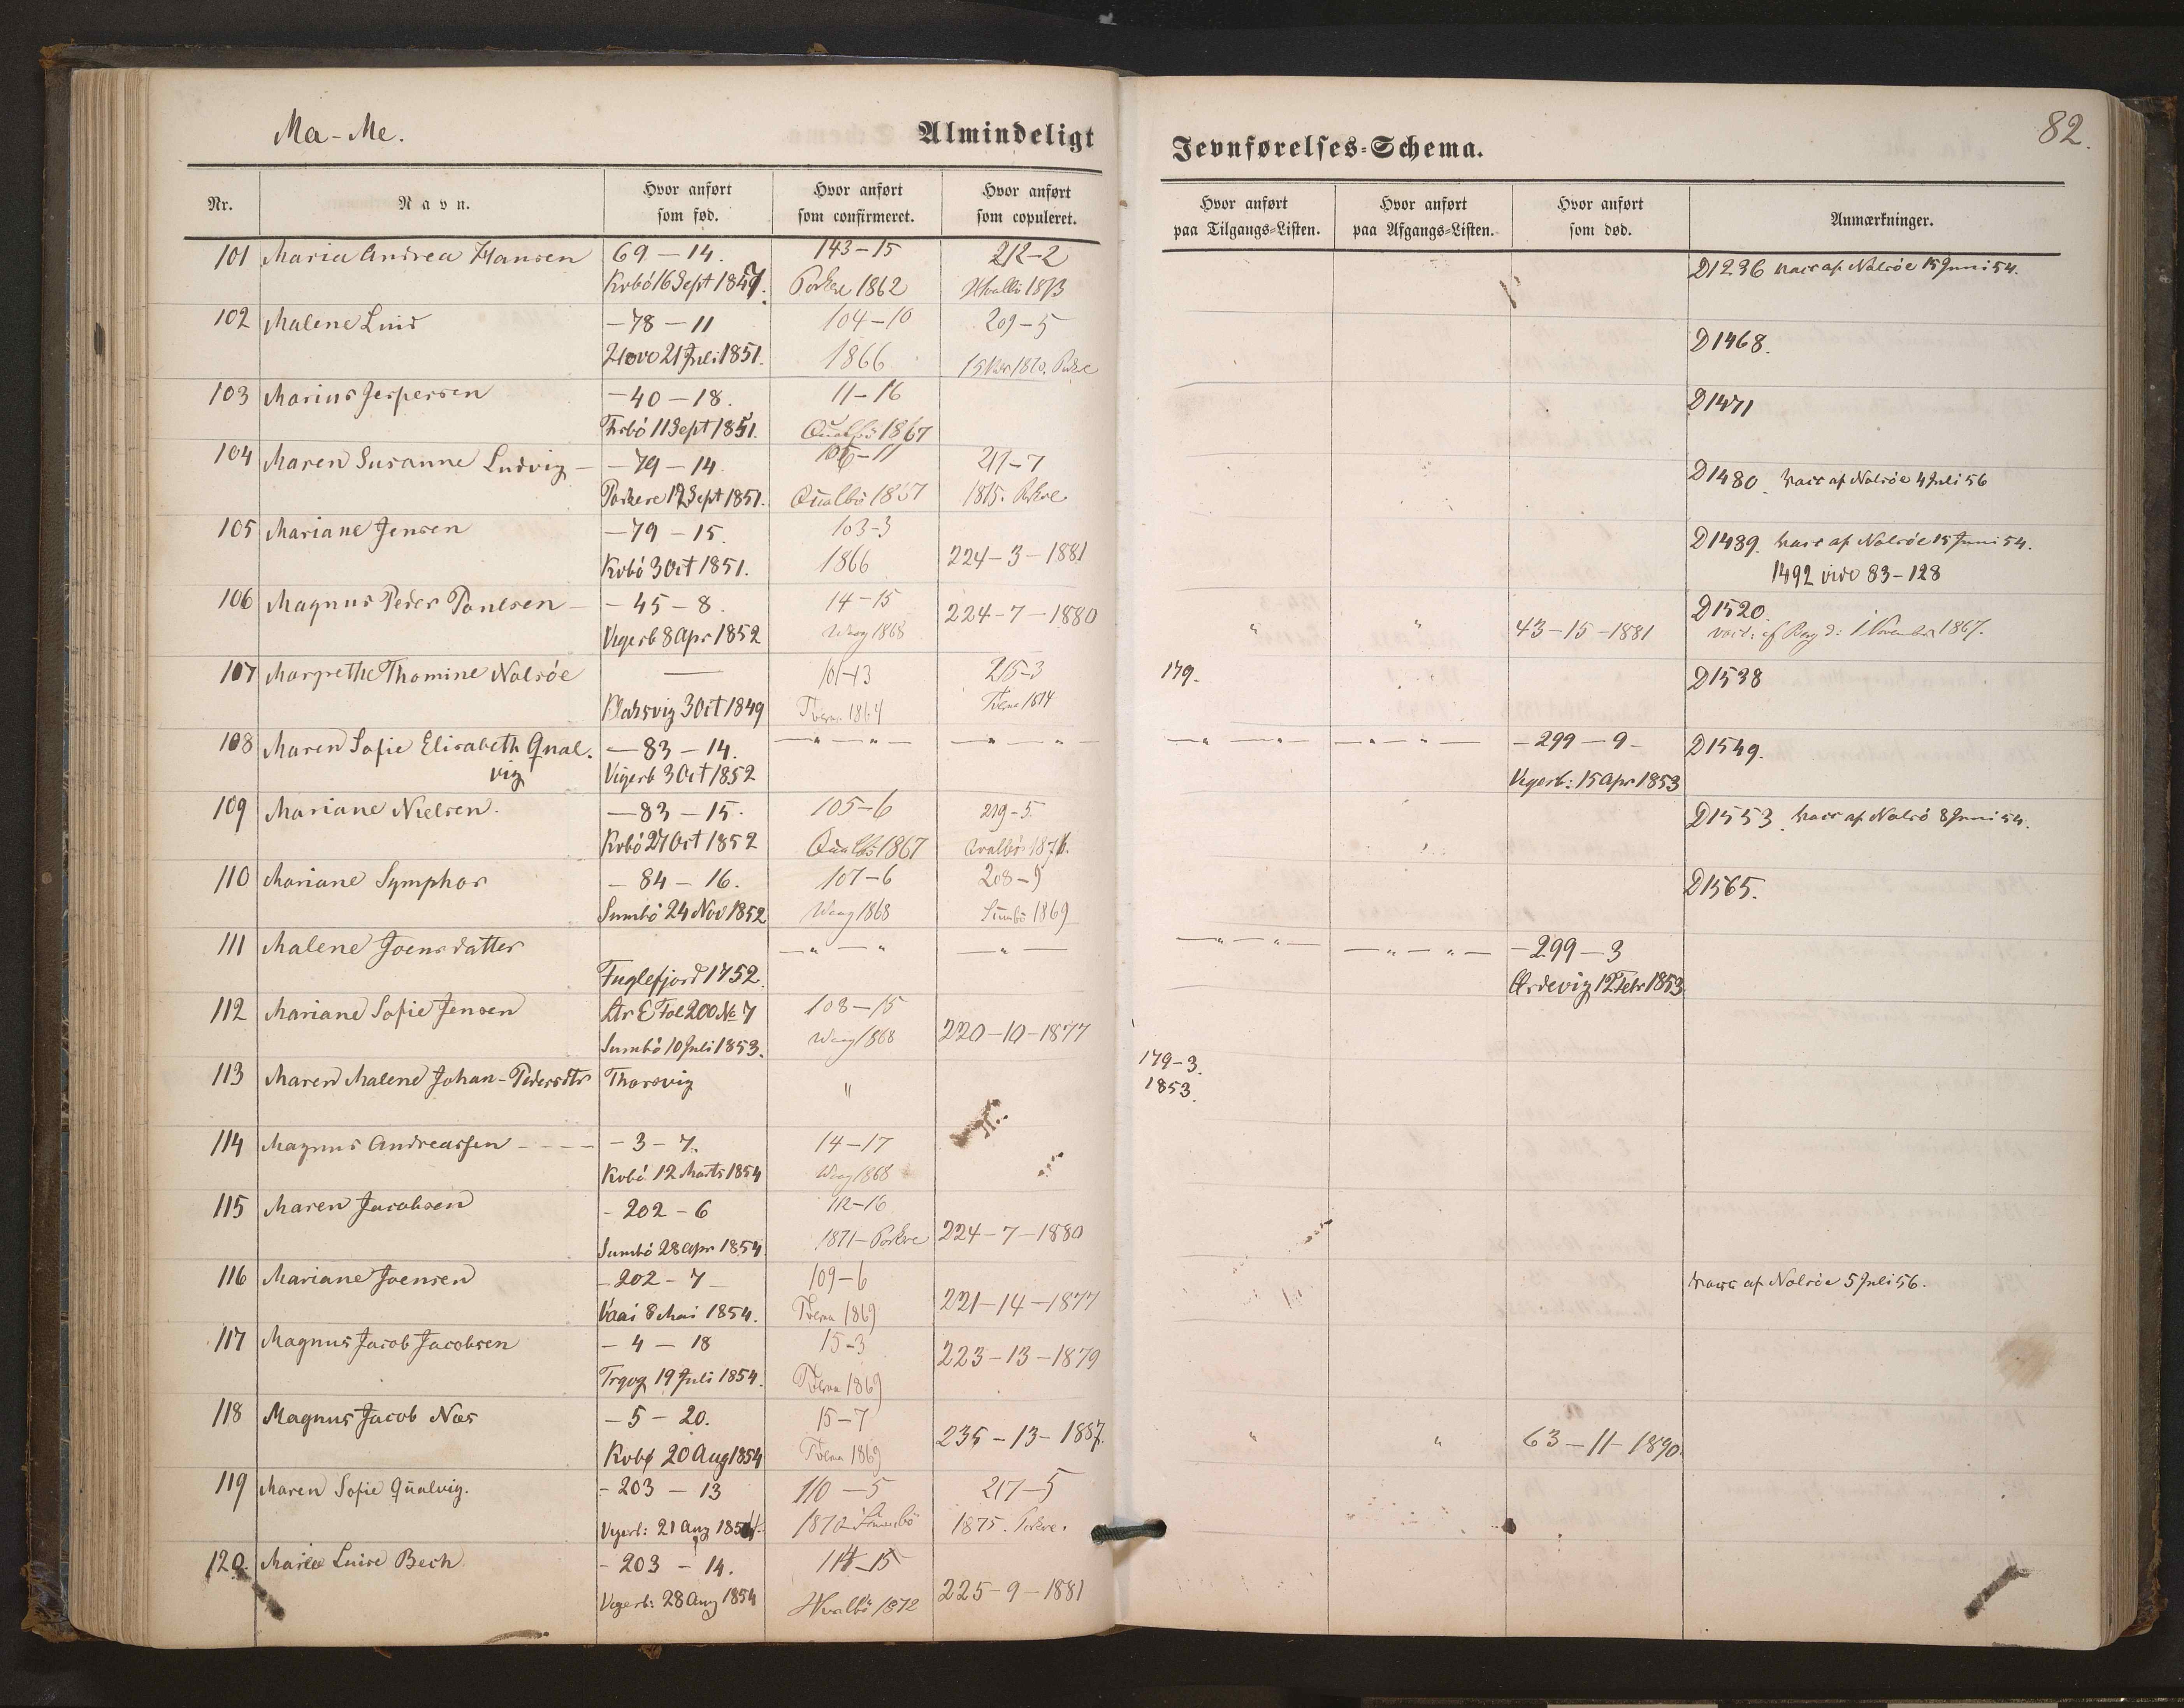 Ma-Me.
Almindeligt
Jevnførelses-Schema.
82.
Nr.
Navn.
Hvor anført som fød.
Hvor anført som confirmeret.
Hvor anført som copuleret.
Hvor anført paa Tilgangs-Listen.
Hvor anført paa Afgangs-Listen.
Hvor anført som død.
Anmærkninger.
101 Maria Andrea Hansen 69-14. 143-15 212-2 D1236 vacc af Nolsöe 15 Juni 54.
Kvbö 16 Sept 1847. Porkere 1862 Hvalbö 1873
102 Malene Lind -78-11 104-10 209-5 D1468.
Hovo 21 Juli 1851. 1866 1870. Porkre
103 Marius Jespersen -40-18. 11-16 D1471
11 Sept 1851. Qualbö 1867
104 Maren Susanne Ludvig - -79-14. 106-11 217-7 D1480. vacc af Nolsöe 4 Juli 56
Porkere 12 Sept 1851. Qualbö 1867 1875. Porkre
105 Mariane Jensen -79-15. 103-3 D1489. vacc af Nolsöe 15 Juni 54.
Kvbö 3 Oct 1851. 1866 224-3-1881 1492 vide 83-128
106 Magnus Peder Poulsen - -45-8. 14-15 224-7-1880 " " 43-15-1881 D1520.
Vegerb 8 Apr 1852 Waag 1868 vacc. af Berg d: 1 November 1867.
107 Margrethe Thomine Nolsöe — 101-13 215-3 179. D1538
Klaksvig 3 Oct 1849 Tveraa 1864 Tveraa 1874
108 Maren Sofie Elisabeth Qual- -83-14. -"-"- -"-" -"-"- -"-"- -299-9- D1549.
vig Vegerb 3 Oct 1852 Vegerb: 15 Apr 1853
109 Mariane Nielsen. -83-15. 105-6 219-5. D1553. vacc af Nolsö 8 Juni 54.
Kvbö 27 Oct 1852 Qualbö 1867 Qvalbö 1876.
110 Mariane Symphor -84-16. 107-6 208-9 D1565.
Sumbö 24 Nov 1852 Waag 1868 Sumbö 1869
111 Malene Joensdatter -"-" -"- -"-"- -"-"- -299-3
Fuglefjord 1752. Ördevig 12 Febr 1853
112 Mariane Sofie Jensen Ltr E Fol 200 № 7 108-15
Sumbö 10 Juli 1853. Waag 1868 220-10-1877
113 Maren Malene Johan-Pedersdtr Thorsvig " 179-3.
1853.
114 Magnus Andreassen -3-7. 14-17
Kvbö 12 Marts 1854 Waag 1868
115 Maren Jacobsen -202-6 112-16
Sumbö 28 Apr 1854 1871-Porkre 224-7-1880
116 Mariane Joensen -202-7- 109-6 vacc af Nolsöe 5 Juli 56.
Vaai 8 Mai 1854. Tveraa 1869 221-14-1877
117 Magnus Jacob Jacobsen -4-18 15-3
Trgvg 19 Juli 1854. Tveraa 1869 223-13-1879
118 Magnus Jacob Næs -5-20. 15-7
Kvbø 20 Aug 1854 Tveraa 1869 235-13-1887. " " 63-11-1890.
119 Maren Sofie Qualvig. -203-13 110-5 217-5
Vegerb: 21 Aug 1854. 1870 Sumbö 1875. Porkre.
120. Maria Luise Bech -203-14. 114-15
Vegerb: 28 Aug 1854 Hvalbö 1872 225-9-1881